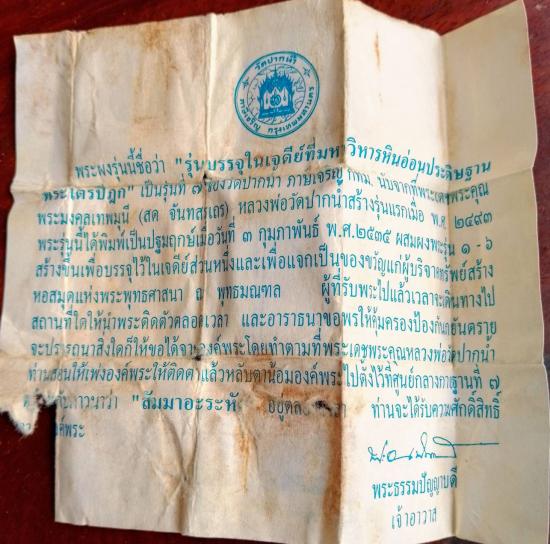 วัดปากน้ำ
ภาษีเจริญ กรุงเทพมหานคร
พระผงรุ่นนี้ชื่อว่า "รุ่นบรรจุในเจดีย์ที่มหาวิหารหินอ่อนประดิษฐาน
พระไตรปิฎก" เป็นรุ่นที่ ๗ ของวัดปากน้ำ ภาษีเจริญ กทม. นับจากที่พระเดชพระคุณ
พระมงคลเทพมุนี (สด จันทสรเถร) หลวงพ่อวัดปากน้ำสร้างรุ่นแรกเมื่อ พ.ศ. ๒๔๙๓
พระรุ่นนี้ได้พิมพ์เป็นปฐมฤกษ์เมื่อวันที่ ๓ กุมภาพันธ์ พ.ศ.๒๕๓๕ ผสมผงพระรุ่น ๑ - ๖
สร้างขึ้นเพื่อบรรจุไว้ในเจดีย์ส่วนหนึ่งและเพื่อแจกเป็นของขวัญแก่ผู้บริจาคทรัพย์สร้าง
หอสมุดแห่งพระพุทธศาสนา ณ พุทธมณฑล ผู้ที่รับพระไปแล้วเวลาจะเดินทางไป
สถานที่ใดให้นำพระติดตัวตลอดเวลา และอาราธนาขอพรให้คุ้มครองป้องกันภยันตราย
จะปรารถนาสิ่งใดก็ให้ขอได้จากองค์พระโดยทำตามที่พระเดชพระคุณหลวงพ่อวัดปากน้ำ
ท่านสอนให้เพ่งองค์พระให้ติดตาแล้วหลับตาน้อมองค์พระไปตั้งไว้ที่ศูนย์กลางกายฐานที่ ๗
ภาวนาว่า "สัมมาอะระหั ท่านจะได้รับความศักดิ์สิทธิ์
พระ
พระธรรมปัญญาบดี
เจ้าอาวาส